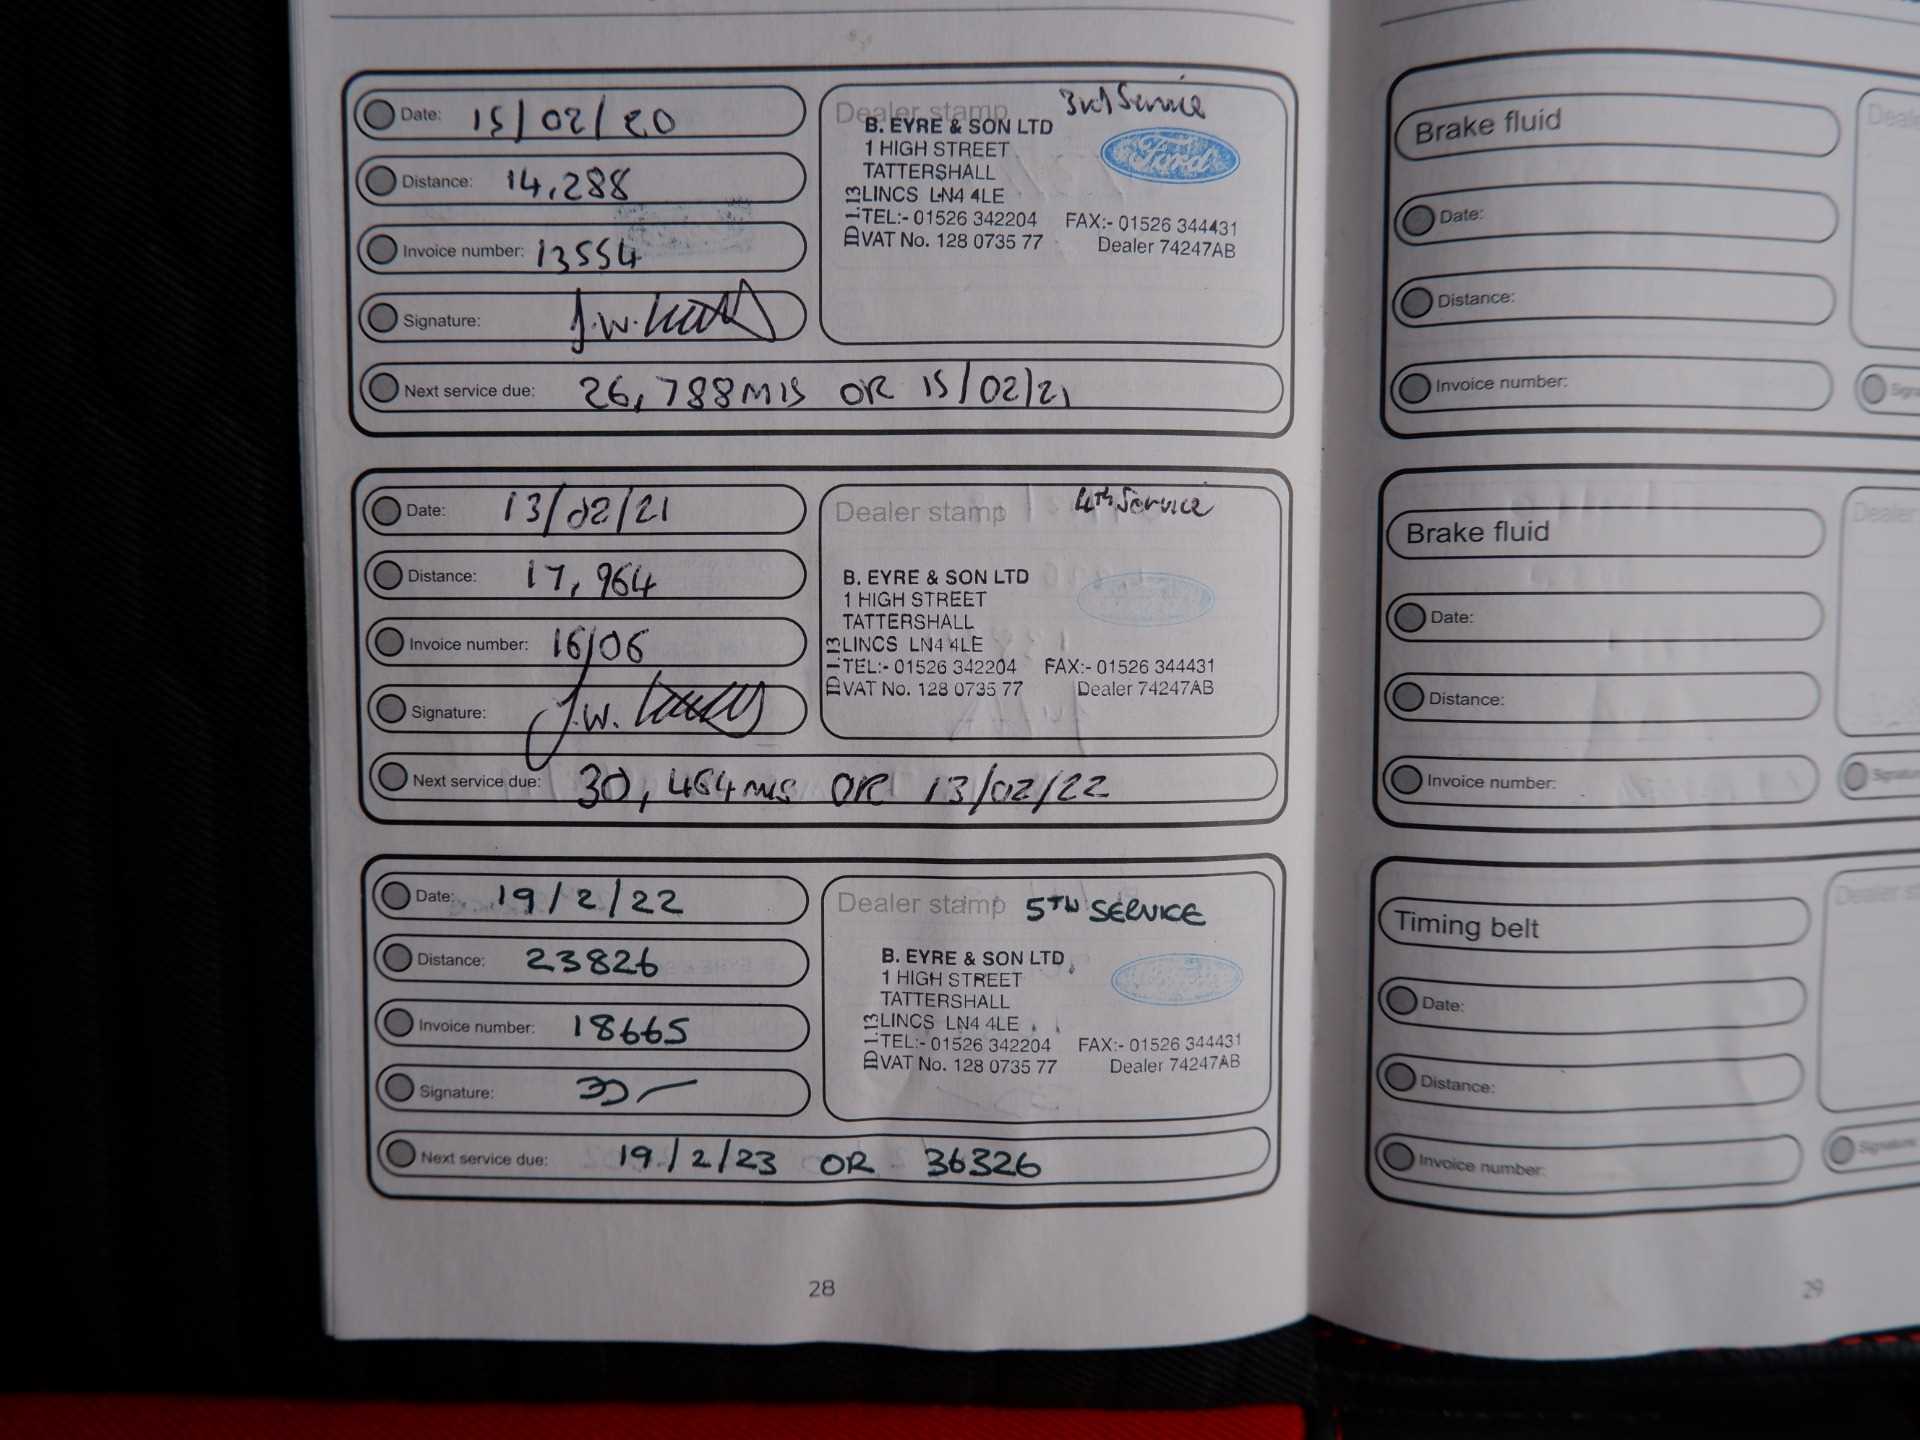 Date: 15/02/20
Distance: 14,288
Invoice number: 13554
Signature: J.W.
Dealer stamp 3rd Service
B. EYRE & SON LTD
Ford
1 HIGH STREET
TATTERSHALL
LINCS LN4 4LE
TEL:- 01526 342204 FAX:- 01526 344431
VAT No. 128 0735 77 Dealer 74247AB
ID 1.13
Next service due: 26,788 MLS OR 15/02/21
Date: 13/02/21
Distance: 17,964
Invoice number: 16106
Signature: J.W.
Dealer stamp 4th Service
B. EYRE & SON LTD
1 HIGH STREET
TATTERSHALL
LINCS LN4 4LE
TEL:- 01526 342204 FAX:- 01526 344431
VAT No. 128 0735 77 Dealer 74247AB
ID 1.13
Next service due: 30,464 MLS OR 13/02/22
Date: 19/2/22
Distance: 23826
Invoice number: 18665
Signature:
Dealer stamp 5TH SERVICE
B. EYRE & SON LTD
1 HIGH STREET
TATTERSHALL
LINCS LN4 4LE
TEL:- 01526 342204 FAX:- 01526 344431
VAT No. 128 0735 77 Dealer 74247AB
ID 1.13
Next service due: 19/2/23 OR 36326
28
Brake fluid
Date:
Distance:
Invoice number:
Brake fluid
Dealer
Date:
Distance:
Invoice number:
Timing belt
Dealer st
Date:
Distance:
Invoice number:
Signature
29